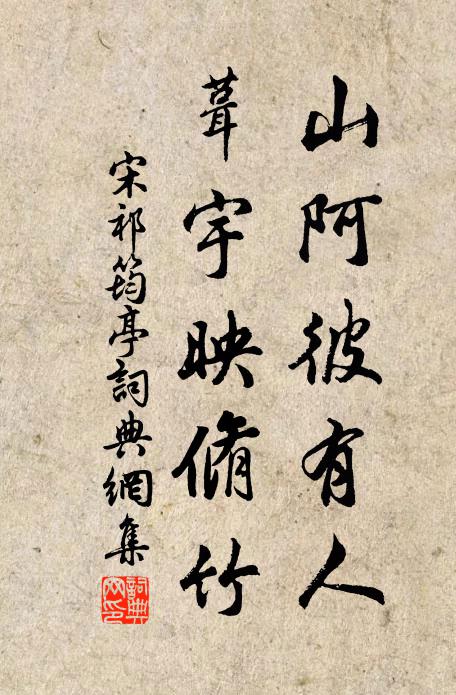 山阿彼有人
葺宇映脩竹
宋祁筠亭詞典網集
詞典網印